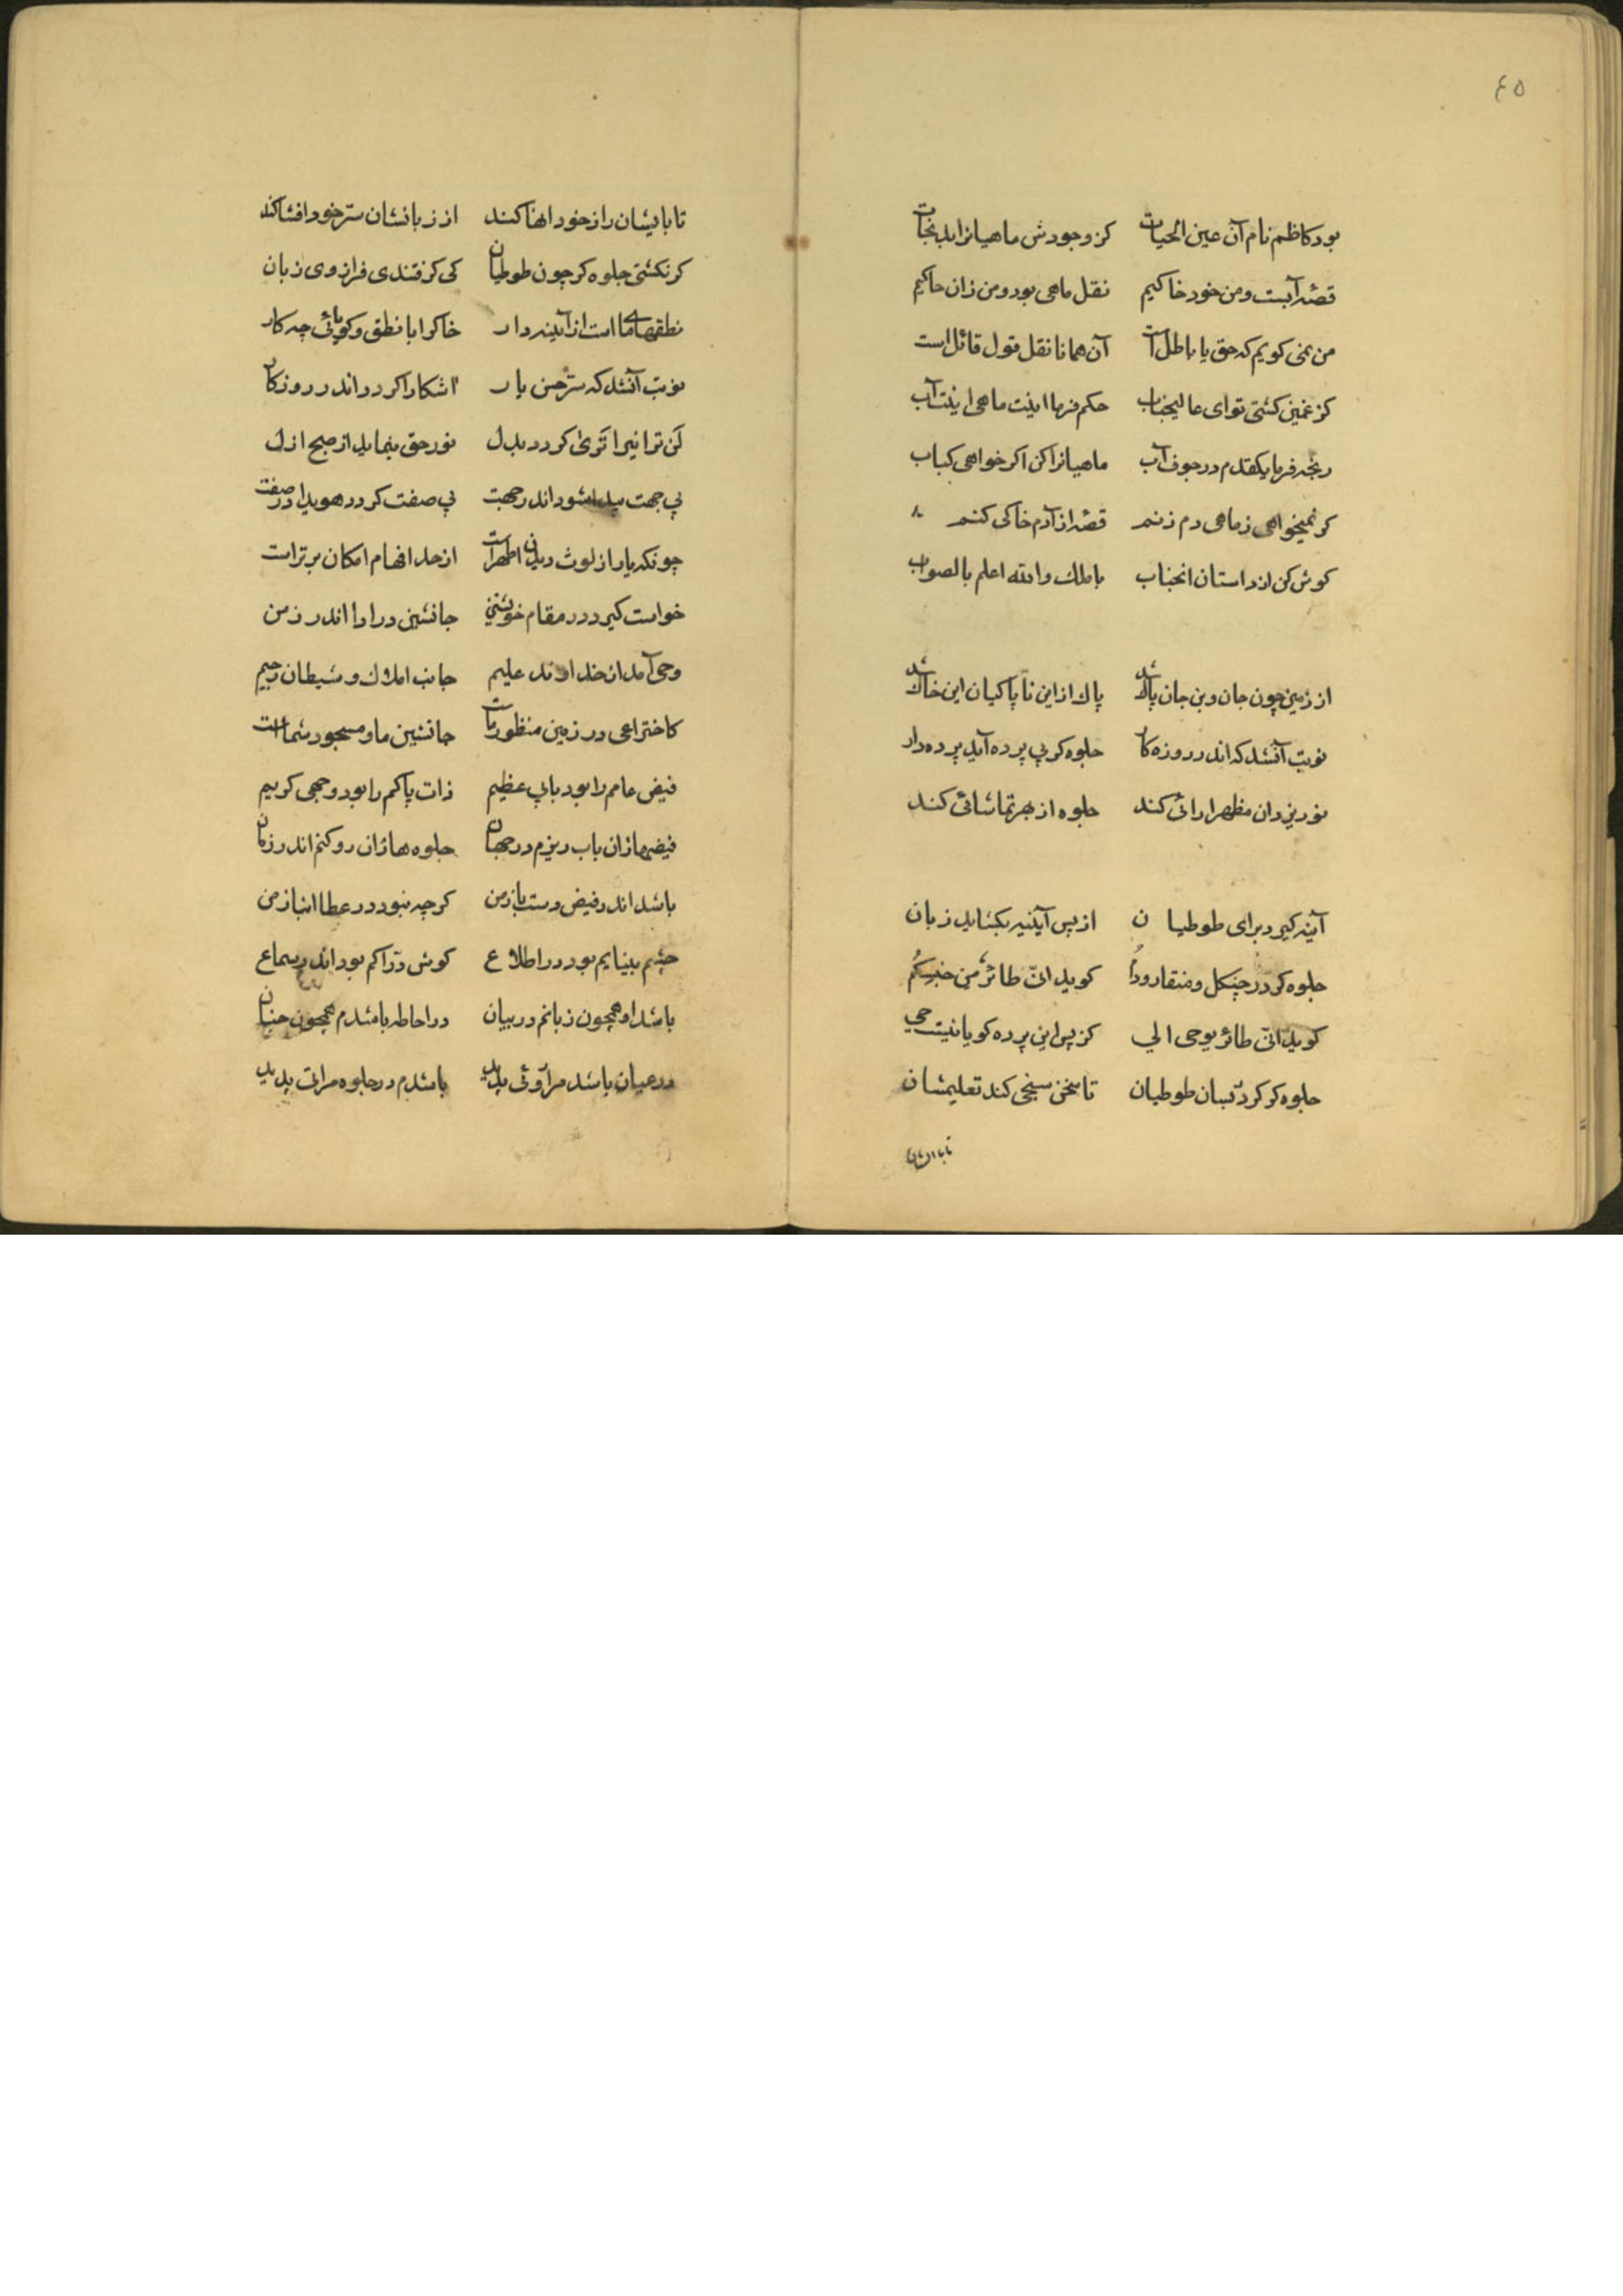 ٤٥
بود کاظم نام آن عین الحیات کز وجودش ماهیانرا بد نجات
قصّه آبست و من خود خاکیم نقل ماهی بود و من زان حاکیم
من نمی کویم که حق یا باطل است آن همانا نقل قول قائل است
کر غمین کشتی تو ای عالیجناب حکم فرما اینت ماهی اینت آب
رنجه فرما یکقدم در جوف آب ماهیانرا کن اکر خواهی کباب
کر نمیخواهی ز ماهی دم زنم قصّه از آدم خاکی کنم
کوش کن از داستان انجناب با ملك والله اعلم بالصواب
از زمین چون جان و بن جان پاك شد پاك از این ناپاکیان این خاك شد
نوبت آنشد که اندر روزه کار جلوه کر بی پرده آید پرده دار
نور یزدان مظهرارائی کند جلوه از بهر تماشائی کند
آینه کیرد برای طوطیان از پس آیینه بکشاید زبان
جلوه کر در چنکل و منقار و دم کوید انّی طائرٌ من جنسکُم
کوید انّی طائر یوحی الي کز پس این پرده کویا نیست حي
جلوه کر کردد بسان طوطیان تا سخن سنجی کند تعلیمشان
تا با ایشان
تا بایشان راز خود انها کند از زبانشان سرّ خود افشا کند
کر نکشتی جلوه کر چون طوطیان کی کرفتندی فرا زوی زبان
نطقهای ما است از آیینه دار خاکرا با نطق و کویائی چه کار
نوبت آنشد که سرّ حسن یار اشکارا کردد اندر روزکار
لَن ترانیرا تَریٰ کردد بدل نور حق بنماید از صبح ازل
بی جهت پیدا شود اندر جهت بی صفت کردد هویدا در صفت
چونکه یار از لوث دیدن اطهر است از حد افهام امکان برتر است
خواست کیرد در مقام خویشتن جانشین دارا اندر زمن
وحی آمد از خداوند علیم جانب املاك و شیطان رجیم
کاختراعی در زمین منظور ماست جانشین ما و مسجود شماست
فیض عامم را بود بابی عظیم ذات پاکم را بود وجهی کریم
فیضها زان باب ریزم در جهان جلوه ها زان رو کنم اندر زمان
باشد اندر فیض دست باز من کرچه نبود در عطا انباز من
چشم بینایم بود در اطلاع کوش درّاکم بود اندر سماع
باشد او همچون زبانم در بیان در احاطه باشدم همچون جنان
در عیان باشد مرا وئی پدید باشدم در جلوه مرات پدید